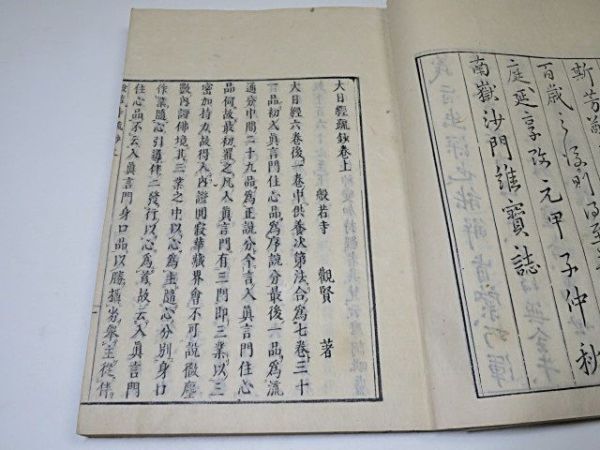 斯芳
百歳之後則
庭延享改元甲子仲秋
南嶽沙門維寶誌
大日經疏鈔卷上
般若寺 觀賢 著
大日經六卷後一卷中供養次第法合爲七卷三十
一品初入眞言門住心品爲序説分最後一品爲流
通分中間二十九品爲正説分今言入眞言門住心
品何故最初置之凡入眞言門有三門即三業以三
密加持力故得入内證圓寂華藏界會不可説微塵
數内證佛境其三業之中以心爲主隨心分別身口
作業隨心引導律二發行以心爲義故云入眞言門
住心品不云入眞言門身口品以勝攝劣擧主從伴